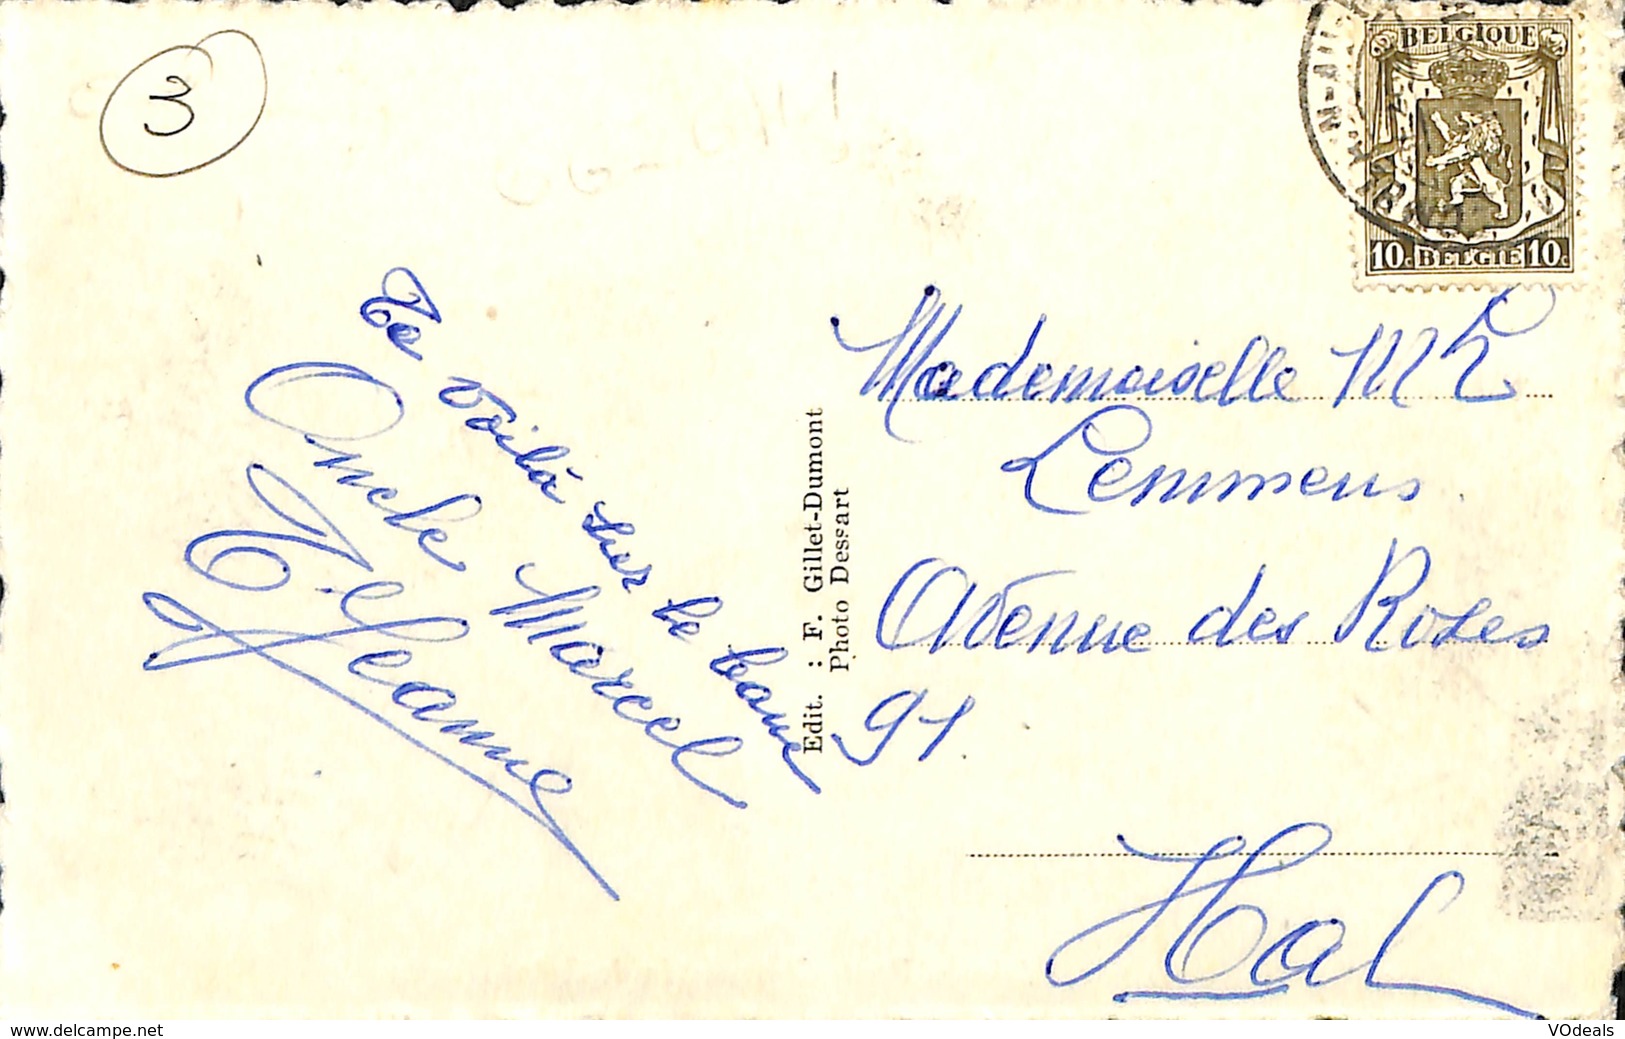 3
BELGIQUE
10c BELGIE 10c
Te voilà sur le bane
Oncle Marcel
T. Jeanne
Edit. : F. Gillet-Dumont
Photo Dessart
Mademoiselle M L
Lemmens
Avenue des Roses
91
Hal
www.delcampe.net
VOdeals